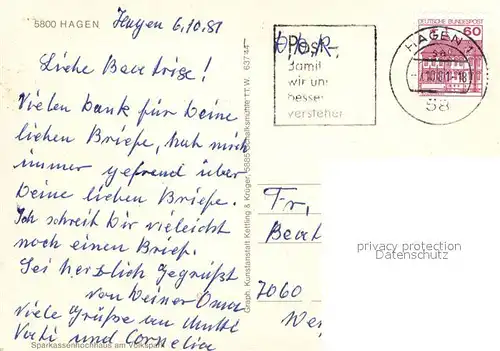 5800 HAGEN
Hagen 6.10.81
Liebe Beatrise!
Vielen Dank für Deine
lieben Briefe, hab mich
immer gefreud über
Deine lieben Briefe.
Ich schreib Dir vieleicht
noch einen Brief.
Sei herzlich gegrüßt
von Deiner Oma
viele Grüße an Mutti
Vati und Cornelia
Sparkassenhochhaus am Volkspark
Graph. Kunstanstalt Kettling & Krüger, 5885 Schalksmühle TT.W. 637 44
Post-
Damit
wir uns
besser
verstehen
HAGEN 1
58
DEUTSCHE BUNDESPOST
60
Fr,
Beat
7060
privacy protection
VON ANSICHTSKARTEN